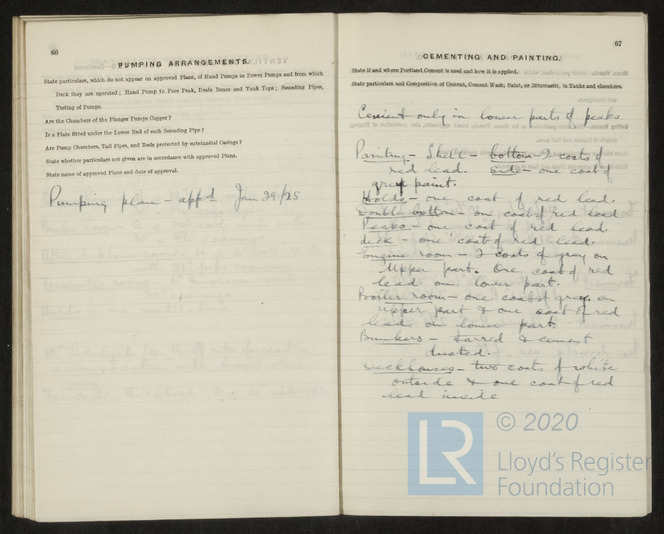 66
PUMPING ARRANGEMENTS.
State particulars, which do not appear on approved Plans, of Hand Pumps or Power Pumps and from which
Deck they are operated; Hand Pump to Fore Peak, Drain Boxes and Tank Tops; Sounding Pipes,
Testing of Pumps.
Are the Chambers of the Plunger Pumps Copper?
Is a Plate fitted under the Lower End of each Sounding Pipe?
Are Pump Chambers, Tail Pipes, and Rods protected by substantial Casings?
State whether particulars not given are in accordance with approved Plans.
State name of approved Plans and date of approval.
Pumping plan - appd Jan 29/25
67
CEMENTING AND PAINTING.
State if and where Portland Cement is used and how it is applied.
State particulars and Composition of Cement, Cement Wash, Paint, or Bitumastic, in Tanks and elsewhere.
Cement only in lower parts of peaks
Painting - Shell - bottom - 2 coats of
red lead. Side - one coat of
grey paint.
Holds - one coat of red lead
Double bottom - one coat of red lead
Peaks - one coat of red lead
deck - one coat of red lead.
Engine room - 2 coats of grey on
upper part. One coat of red
lead on lower part.
Boiler room - one coat of grey on
upper part & one coat of red
lead on lower part.
Bunkers - tarred & cement
dusted.
Deckhouses - two coats of white
outside & one coat of red
lead inside
LR
© 2020
Lloyd's Register
Foundation